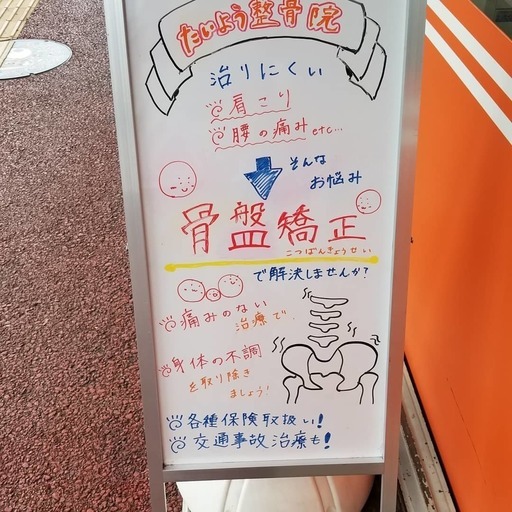 たいよう整骨院
治りにくい
肩こり
腰の痛みetc...
そんな
お悩み
骨盤矯正
こつばんきょうせい
で解決しませんか?
痛みのない
治療で
身体の不調
を取り除き
ましょう!
各種保険取扱い!
交通事故治療も!